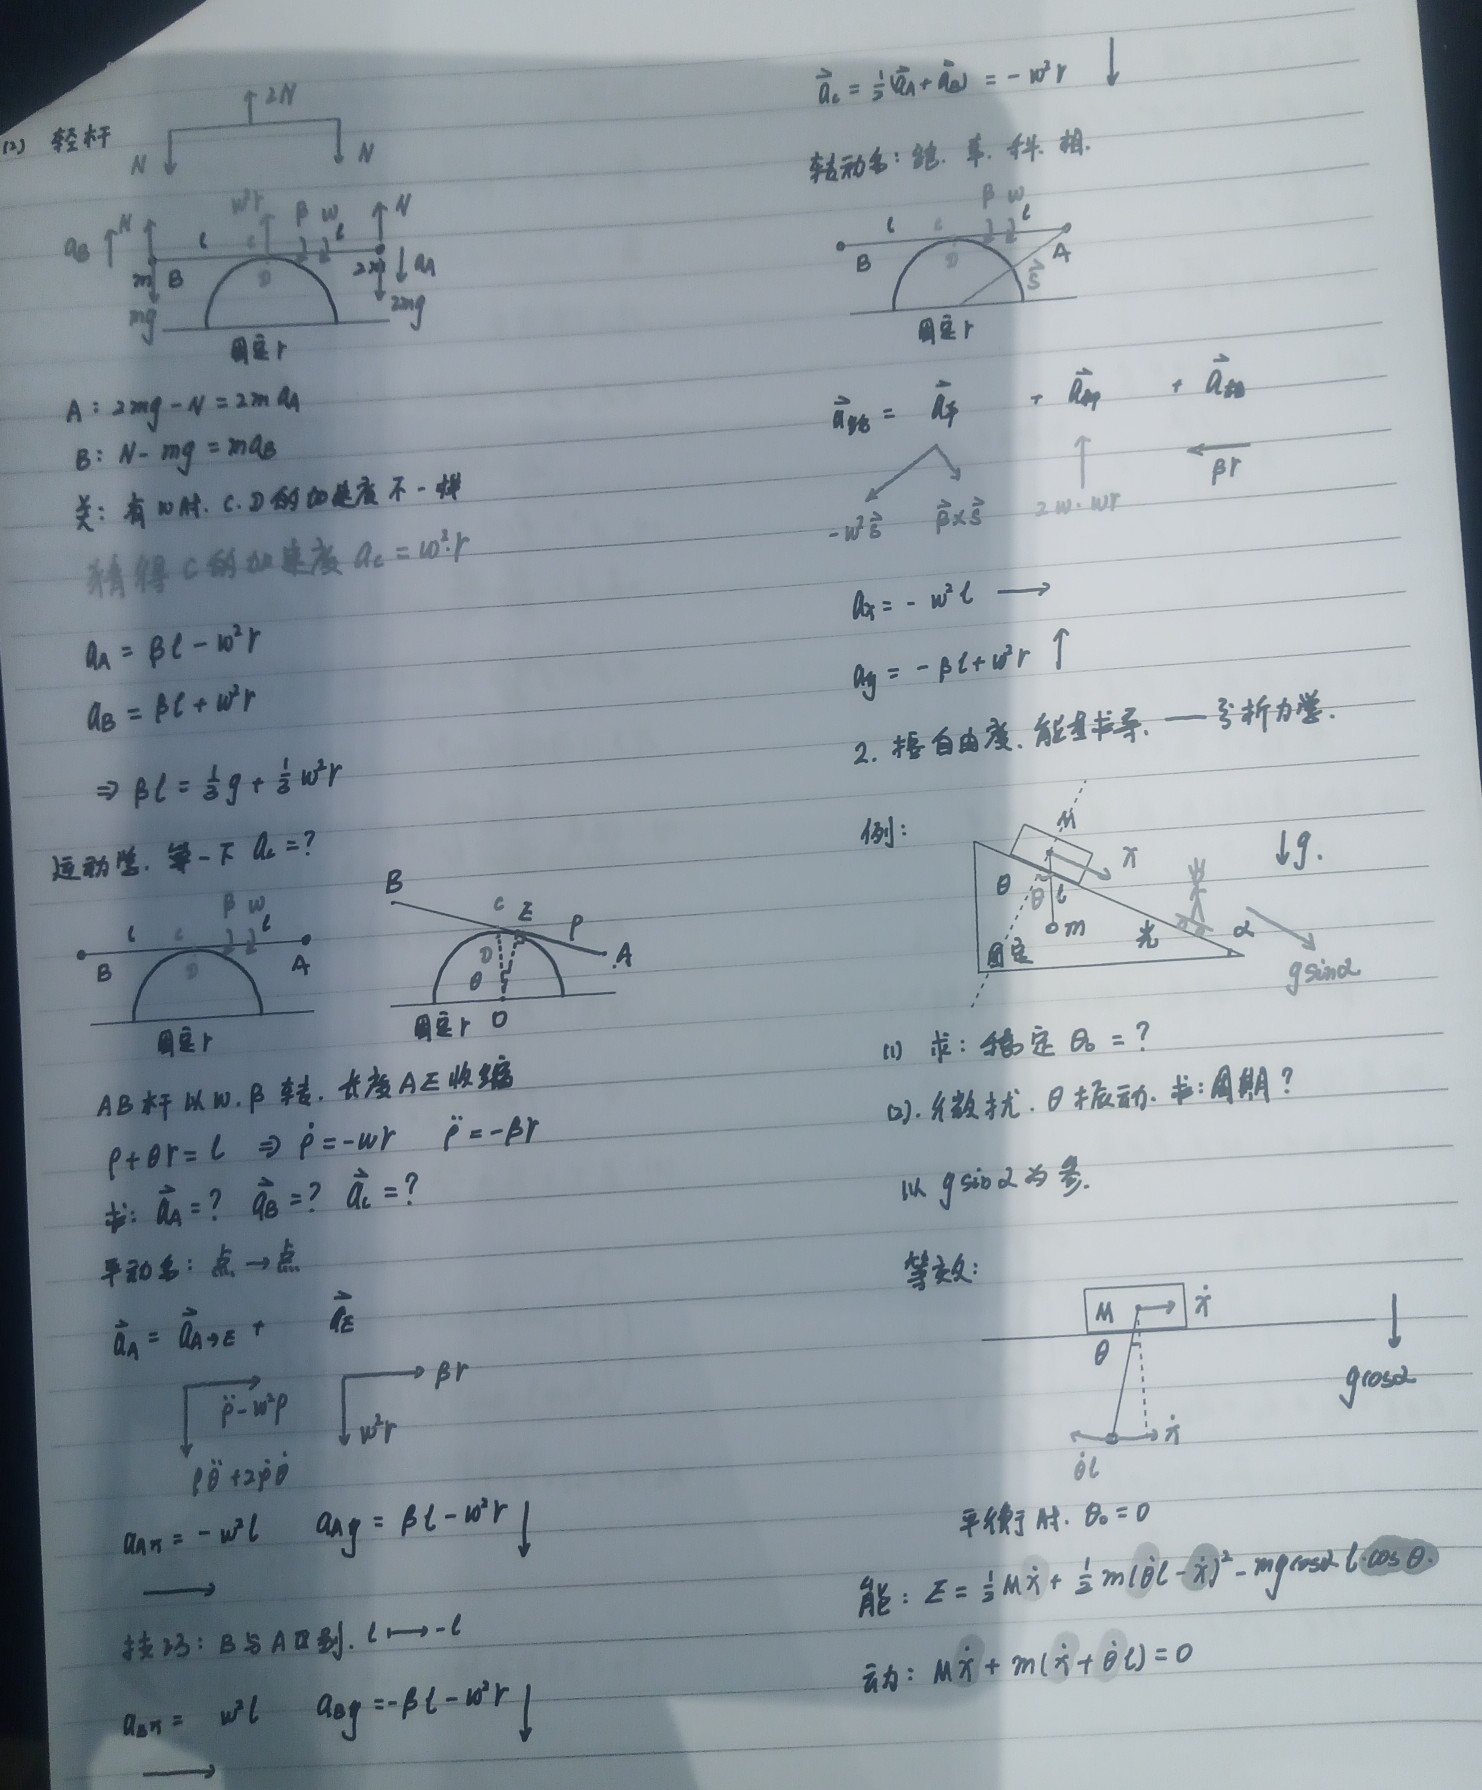 (2) 轻杆
2N
N N
ω²r β ω N
aB N l c l
m B D 2m aA
mg 2mg
固定r
A: 2mg-N=2maA
B: N-mg=maB
关: 有ω时. C、D的加速度不一样
猜得C的加速度 ac=ω²·r
aA = βl-ω²r
aB = βl+ω²r
⇒ βl = ⅓g + ⅓ω²r
运动学. 算一下 ac=?
l c β ω l
B D A
固定r
B C E ρ
D A
θ
固定r O
AB杆以ω、β转. 长度AE收缩
ρ+θr=l ⇒ ρ̇=-ωr ρ̈=-βr
求: a⃗A=? a⃗B=? a⃗c=?
平动系: 点→点
a⃗A = a⃗A→E + a⃗E
ρ̈-ω²ρ βr
ρθ̈+2ρ̇θ̇ ω²r
aAx = -ω²l aAy = βl-ω²r ↓
→
技巧: B与A区别. l ↦ -l
aBx = ω²l aBy = -βl-ω²r ↓
→
a⃗c = ½(a⃗A+a⃗B) = -ω²r ↓
转动系: 绝. 牵. 科. 相.
l c β ω l
B D A
s⃗
固定r
a⃗绝 = a⃗牵 + a⃗科 + a⃗相
-ω²s⃗ β⃗×s⃗ 2ω·ωr βr
ax = -ω²l →
ay = -βl+ω²r ↑
2. 擅自由度. 能量求导. — 分析力学.
例:
M x ↓g.
θ θ l
m 光 α
固定 gsinα
(1) 求: 稳定 θ₀=?
(2). 微扰. θ振动. 求: 周期?
以 gsinα 为参.
等效:
M ẋ
θ gcosα
ẋ
θ̇l
平衡时. θ₀=0
能: E = ½Mẋ + ½m(θ̇l-ẋ)² - mgcosα l·cosθ.
动: Mẋ + m(ẋ+θ̇l)=0